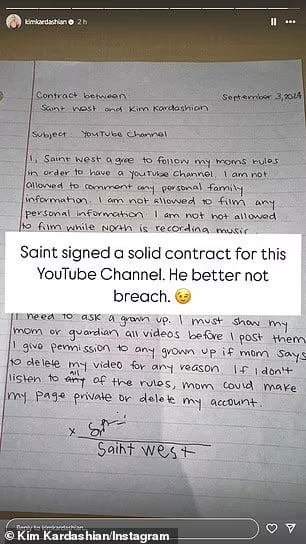 kimkardashian 2 h
Contract between: September 3, 2024
Saint West and Kim Kardashian
Subject: YouTube Channel
I, Saint West agree to follow my moms rules
in order to have a YouTube channel. I am not
allowed to comment any personal family
information. I am not allowed to film any
personal information I am not hot allowed
to film while North is recording music
Saint signed a solid contract for this
YouTube Channel. He better not
breach. 😉
I need to ask a grown up. I must show my
mom or guardian all videos before I post them
I give permission to any grown up if mom says
to delete my video for any reason If I don't
listen to all of the rules, mom could make
my page private or delete my account.
x
Saint West
Reply to kimkardashian...
© Kim Kardashian/Instagram